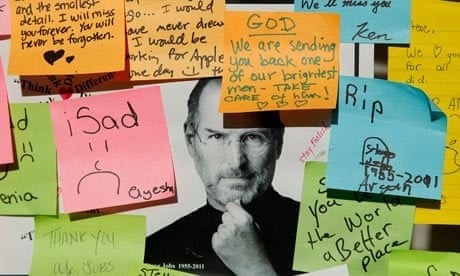 and the smallest
detail. I will miss
you forever. You will
never be forgotten.
go... I would
have never drea
I would be
working for Apple
me day
GOD
We are sending
you back one
of our brightest
men - TAKE
CARE of him!
We'll miss you
Ken
We
you
for all
did.
"Think Different"
iSad
ayesh
enia
Stay Foolish
Rip
1955-2011
THANK YOU
Mr. JOBS
Jobs 1955-2011
STAY
S
You
the World
a Better
place